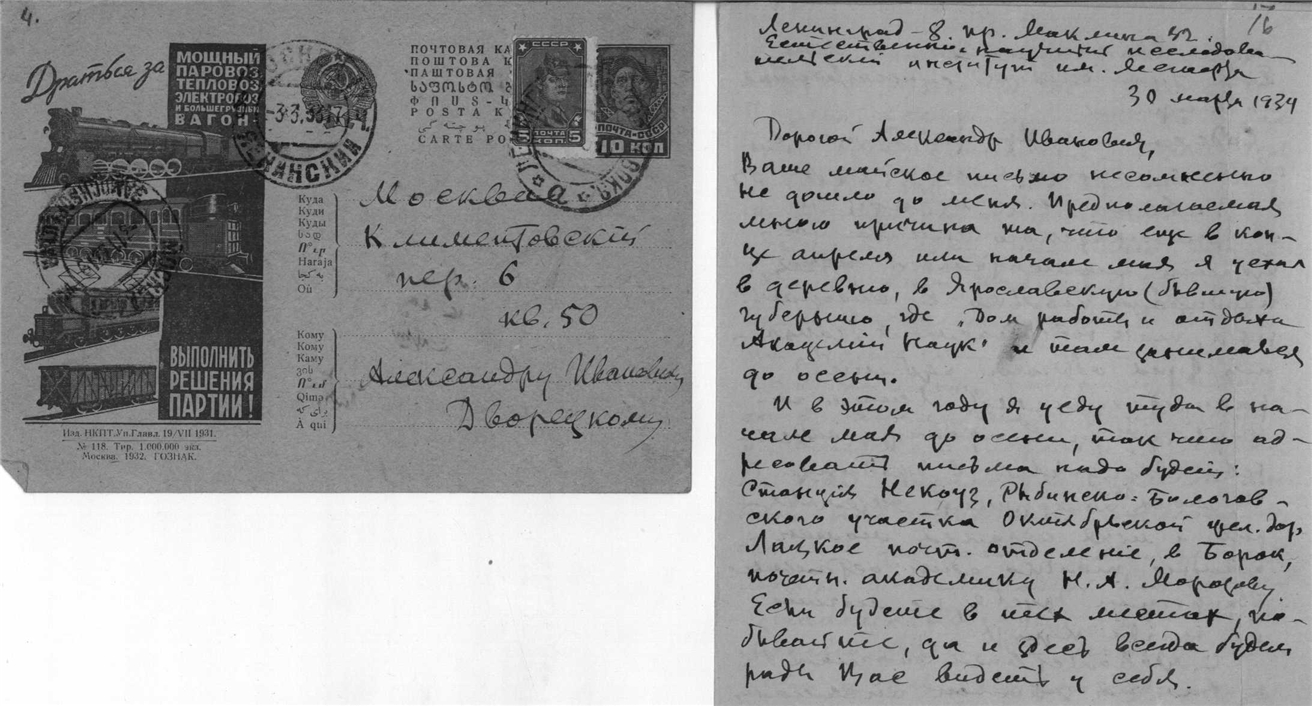 4.
Драться за
МОЩНЫЙ
ПАРОВОЗ,
ТЕПЛОВОЗ,
ЭЛЕКТРОВОЗ
И БОЛЬШЕГРУЗНЫЙ
ВАГОН-
ВЫПОЛНИТЬ
РЕШЕНИЯ
ПАРТИИ!
Изд. НКПТ. Уп. Главл. 19/VII 1931.
№ 118. Тир. 1.000.000 экз.
Москва. 1932. ГОЗНАК.
ПОЧТОВАЯ КА
ПОШТОВА К
ПАШТОВАЯ
POSTA K
CARTE PO
СССР
5 ПОЧТА 5
КОП.
ПОЧТА-СССР
10 КОП
ЛЕНИНСКИЙ
Куда
Куди
Куды
Haraja
Où
Москва
Климентовский
пер. 6
кв. 50
Кому
Кому
Каму
Qimə
À qui
Александру Ивановичу
Дворецкому
Ленинград-8. пр. Маклина 32.
Естественно-научный исследова-
тельский институт им. Лесгафта
30 марта 1934
Дорогой Александр Иванович,
Ваше майское письмо несомненно
не дошло до меня. Предполагаемая
мною причина та, что еще в кон-
це апреля или начале мая я уехал
в деревню, в Ярославскую (бывшую)
губернию, где „Дом работы и отдыха
Академии Наук" и там занимался
до осени.
И в этом году я уеду туда в на-
чале мая до осени, так что ад-
ресовать письма надо будет:
Станция Некоуз, Рыбинско-Бологов-
ского участка Октябрьской жел. дор.
Лацкое почт. отделение, в Борок,
почетн. академику Н. А. Морозову
Если будете в тех местах, по-
бывайте, да и здесь всегда будем
рады Вас видеть у себя.